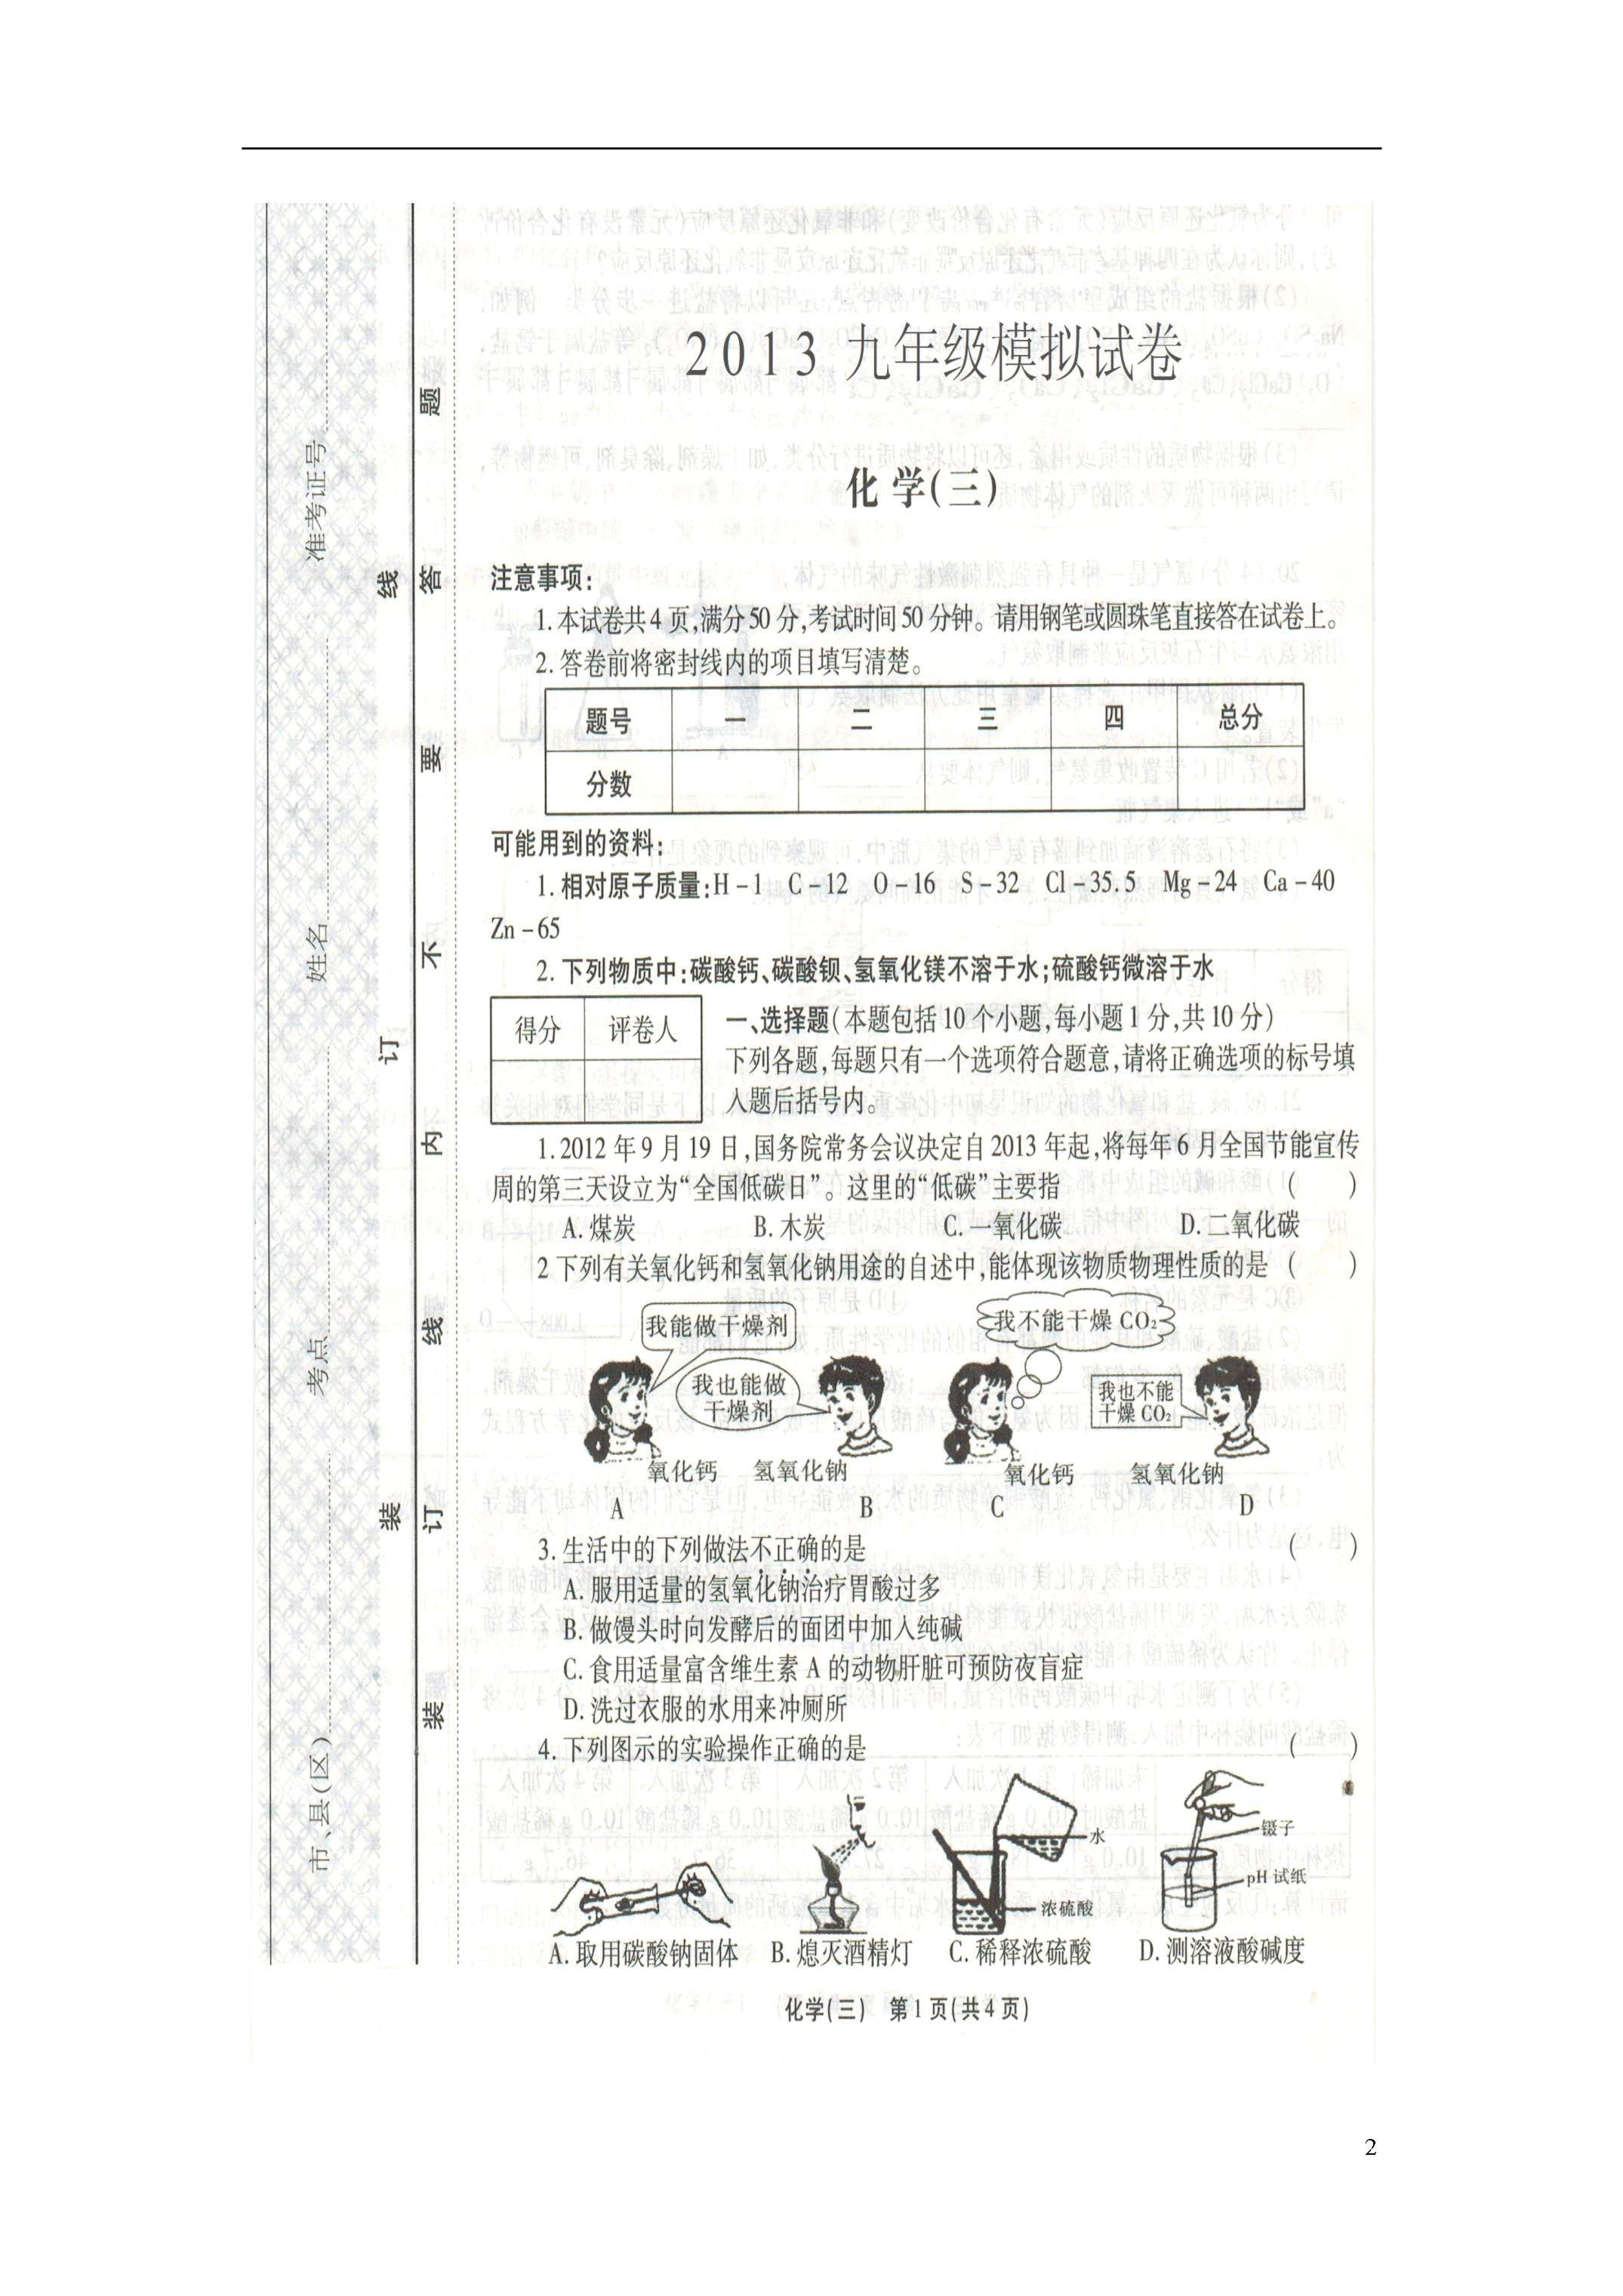 2013 九年级模拟试卷
化学(三)
注意事项:
1.本试卷共4页,满分50分,考试时间50分钟。请用钢笔或圆珠笔直接答在试卷上。
2.答卷前将密封线内的项目填写清楚。
题号 一 二 三 四 总分
分数
可能用到的资料:
1.相对原子质量:H-1 C-12 O-16 S-32 Cl-35.5 Mg-24 Ca-40
Zn-65
2.下列物质中:碳酸钙、碳酸钡、氢氧化镁不溶于水;硫酸钙微溶于水
得分 评卷人
一、选择题(本题包括10个小题,每小题1分,共10分)
下列各题,每题只有一个选项符合题意,请将正确选项的标号填
入题后括号内。
1.2012年9月19日,国务院常务会议决定自2013年起,将每年6月全国节能宣传
周的第三天设立为“全国低碳日”。这里的“低碳”主要指 ( )
A.煤炭 B.木炭 C.一氧化碳 D.二氧化碳
2下列有关氧化钙和氢氧化钠用途的自述中,能体现该物质物理性质的是 ( )
我能做干燥剂
我也能做
干燥剂
我不能干燥CO₂
我也不能
干燥CO₂
氧化钙 氢氧化钠 氧化钙 氢氧化钠
A B C D
3.生活中的下列做法不正确的是 ( )
A.服用适量的氢氧化钠治疗胃酸过多
B.做馒头时向发酵后的面团中加入纯碱
C.食用适量富含维生素A的动物肝脏可预防夜盲症
D.洗过衣服的水用来冲厕所
4.下列图示的实验操作正确的是 ( )
水
浓硫酸
镊子
pH试纸
A.取用碳酸钠固体 B.熄灭酒精灯 C.稀释浓硫酸 D.测溶液酸碱度
化学(三) 第1页(共4页)
市、县(区) 考点 姓名 准考证号
装 订 线
装 订 线 内 不 要 答 题
2